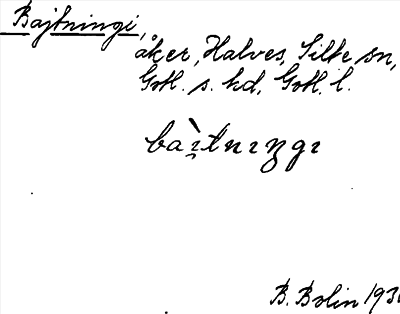 Bajtningi,
åker, Halves, Silte sn,
Gotl. s. hd, Gotl. l.
baı̀tnıŋgı
B. Bolin 193